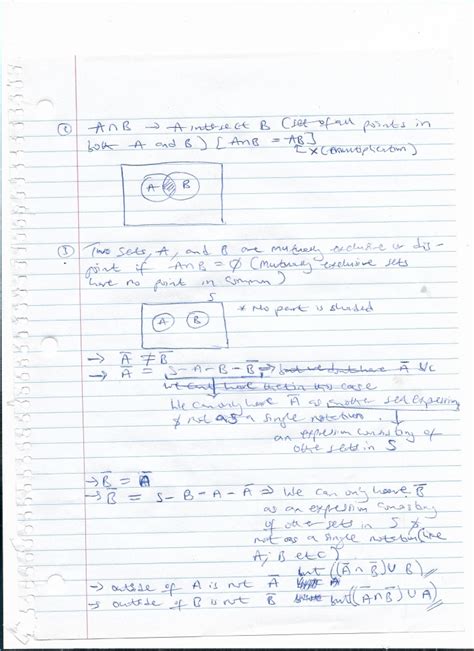 ② A∩B → A intersect B (set of all points in
both A and B) [A∩B = AB]
↳ x (multiplication)
A B
③ Two sets, A, and B are mutually exclusive or dis-
point if A∩B = ∅ (Mutually exclusive sets
have no point in common)
S
* No part is shaded
A B
→ A̅ ≠ B
→ A̅ = S-A-B-B̅ ⇒ but we dont have A̅ b/c
we can have in this case
We can only have A̅ as another set expression
& not as a single notation.
an expression consisting of
other sets in S
→ B̅ = A
→ B̅ = S-B-A-A̅ ⇒ We can only have B̅
as an expression consisting
of other sets in S &
not as a single notation (like
A, B etc)
→ outside of A is not A̅ but ((A̅∩B̅)∪B)
→ outside of B is not B̅ but ((A̅∩B̅)∪A)